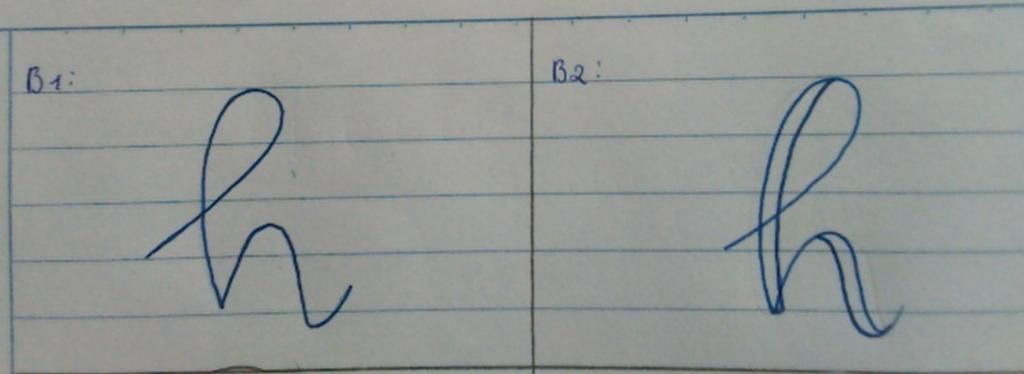 B1:
B2:
h
h